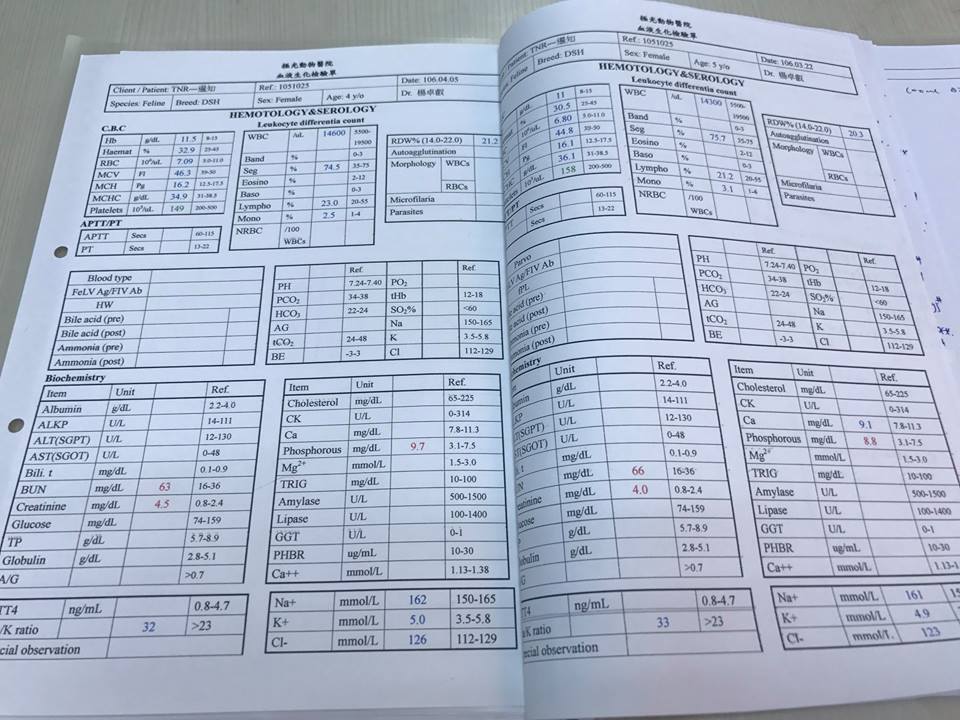 極光動物醫院
血液生化檢驗單
Client / Patient: TNR—邏知 Ref.: 1051025 Date: 106.04.05
Species: Feline Breed: DSH Sex: Female Age: 4 y/o Dr. 楊卓叡
HEMOTOLOGY&SEROLOGY
Leukocyte differentia count
C.B.C
Hb g/dL 11.5 8-15
Haemat % 32.9 25-45
RBC 10⁶/uL 7.09 5.0-11.0
MCV Fl 46.3 39-50
MCH Pg 16.2 12.5-17.5
MCHC g/dL 34.9 31-38.5
Platelets 10³/uL 149 200-500
APTT/PT
APTT Secs 60-115
PT Secs 13-22
WBC /uL 14600 5500-19500
Band % 0-3
Seg % 74.5 35-75
Eosino % 2-12
Baso % 0-3
Lympho % 23.0 20-55
Mono % 2.5 1-4
NRBC /100 WBCs
RDW% (14.0-22.0) 21.2
Autoagglutination
Morphology WBCs
RBCs
Microfilaria
Parasites
Blood type
FeLV Ag/FIV Ab
HW
Bile acid (pre)
Bile acid (post)
Ammonia (pre)
Ammonia (post)
Ref. Ref.
PH 7.24-7.40 PO₂
PCO₂ 34-38 tHb 12-18
HCO₃ 22-24 SO₂% <60
AG Na 150-165
tCO₂ 24-48 K 3.5-5.8
BE -3-3 Cl 112-129
Biochemistry
Item Unit Ref.
Albumin g/dL 2.2-4.0
ALKP U/L 14-111
ALT(SGPT) U/L 12-130
AST(SGOT) U/L 0-48
Bili. t mg/dL 0.1-0.9
BUN mg/dL 63 16-36
Creatinine mg/dL 4.5 0.8-2.4
Glucose mg/dL 74-159
TP g/dL 5.7-8.9
Globulin g/dL 2.8-5.1
A/G >0.7
Item Unit Ref.
Cholesterol mg/dL 65-225
CK U/L 0-314
Ca mg/dL 7.8-11.3
Phosphorous mg/dL 9.7 3.1-7.5
Mg²⁺ mmol/L 1.5-3.0
TRIG mg/dL 10-100
Amylase U/L 500-1500
Lipase U/L 100-1400
GGT U/L 0-1
PHBR ug/mL 10-30
Ca++ mmol/L 1.13-1.38
TT4 ng/mL 0.8-4.7
/K ratio 32 >23
cial observation
Na+ mmol/L 162 150-165
K+ mmol/L 5.0 3.5-5.8
Cl- mmol/L 126 112-129
極光動物醫院
血液生化檢驗單
/ Patient: TNR—邏知 Ref.: 1051025 Date: 106.03.22
Feline Breed: DSH Sex: Female Age: 5 y/o Dr. 楊卓叡
HEMOTOLOGY&SEROLOGY
Leukocyte differentia count
g/dL 11 8-15
% 30.5 25-45
10⁶/uL 6.80 5.0-11.0
Fl 44.8 39-50
Pg 16.1 12.5-17.5
g/dL 36.1 31-38.5
10³/uL 158 200-500
Secs 60-115
Secs 13-22
WBC /uL 14300 5500-19500
Band % 0-3
Seg % 75.7 35-75
Eosino % 2-12
Baso % 0-3
Lympho % 21.2 20-55
Mono % 3.1 1-4
NRBC /100 WBCs
RDW% (14.0-22.0) 20.3
Autoagglutination
Morphology WBCs
RBCs
Microfilaria
Parasites
Parvo
LV Ag/FIV Ab
fPL
ile acid (pre)
ile acid (post)
mmonia (pre)
mmonia (post)
Ref. Ref.
PH 7.24-7.40 PO₂
PCO₂ 34-38 tHb 12-18
HCO₃ 22-24 SO₂% <60
AG Na 150-165
tCO₂ 24-48 K 3.5-5.8
BE -3-3 Cl 112-129
hemistry
Unit Ref.
bumin g/dL 2.2-4.0
KP U/L 14-111
LT(SGPT) U/L 12-130
ST(SGOT) U/L 0-48
ili. t mg/dL 0.1-0.9
UN mg/dL 66 16-36
reatinine mg/dL 4.0 0.8-2.4
ucose mg/dL 74-159
g/dL 5.7-8.9
obulin g/dL 2.8-5.1
G >0.7
Item Unit Ref.
Cholesterol mg/dL 65-225
CK U/L 0-314
Ca mg/dL 9.1 7.8-11.3
Phosphorous mg/dL 8.8 3.1-7.5
Mg²⁺ mmol/L 1.5-3.0
TRIG mg/dL 10-100
Amylase U/L 500-1500
Lipase U/L 100-1400
GGT U/L 0-1
PHBR ug/mL 10-30
Ca++ mmol/L 1.13-1.3
TT4 ng/mL 0.8-4.7
K ratio 33 >23
ecial observation
Na+ mmol/L 161
K+ mmol/L 4.9
Cl- mmol/L 123